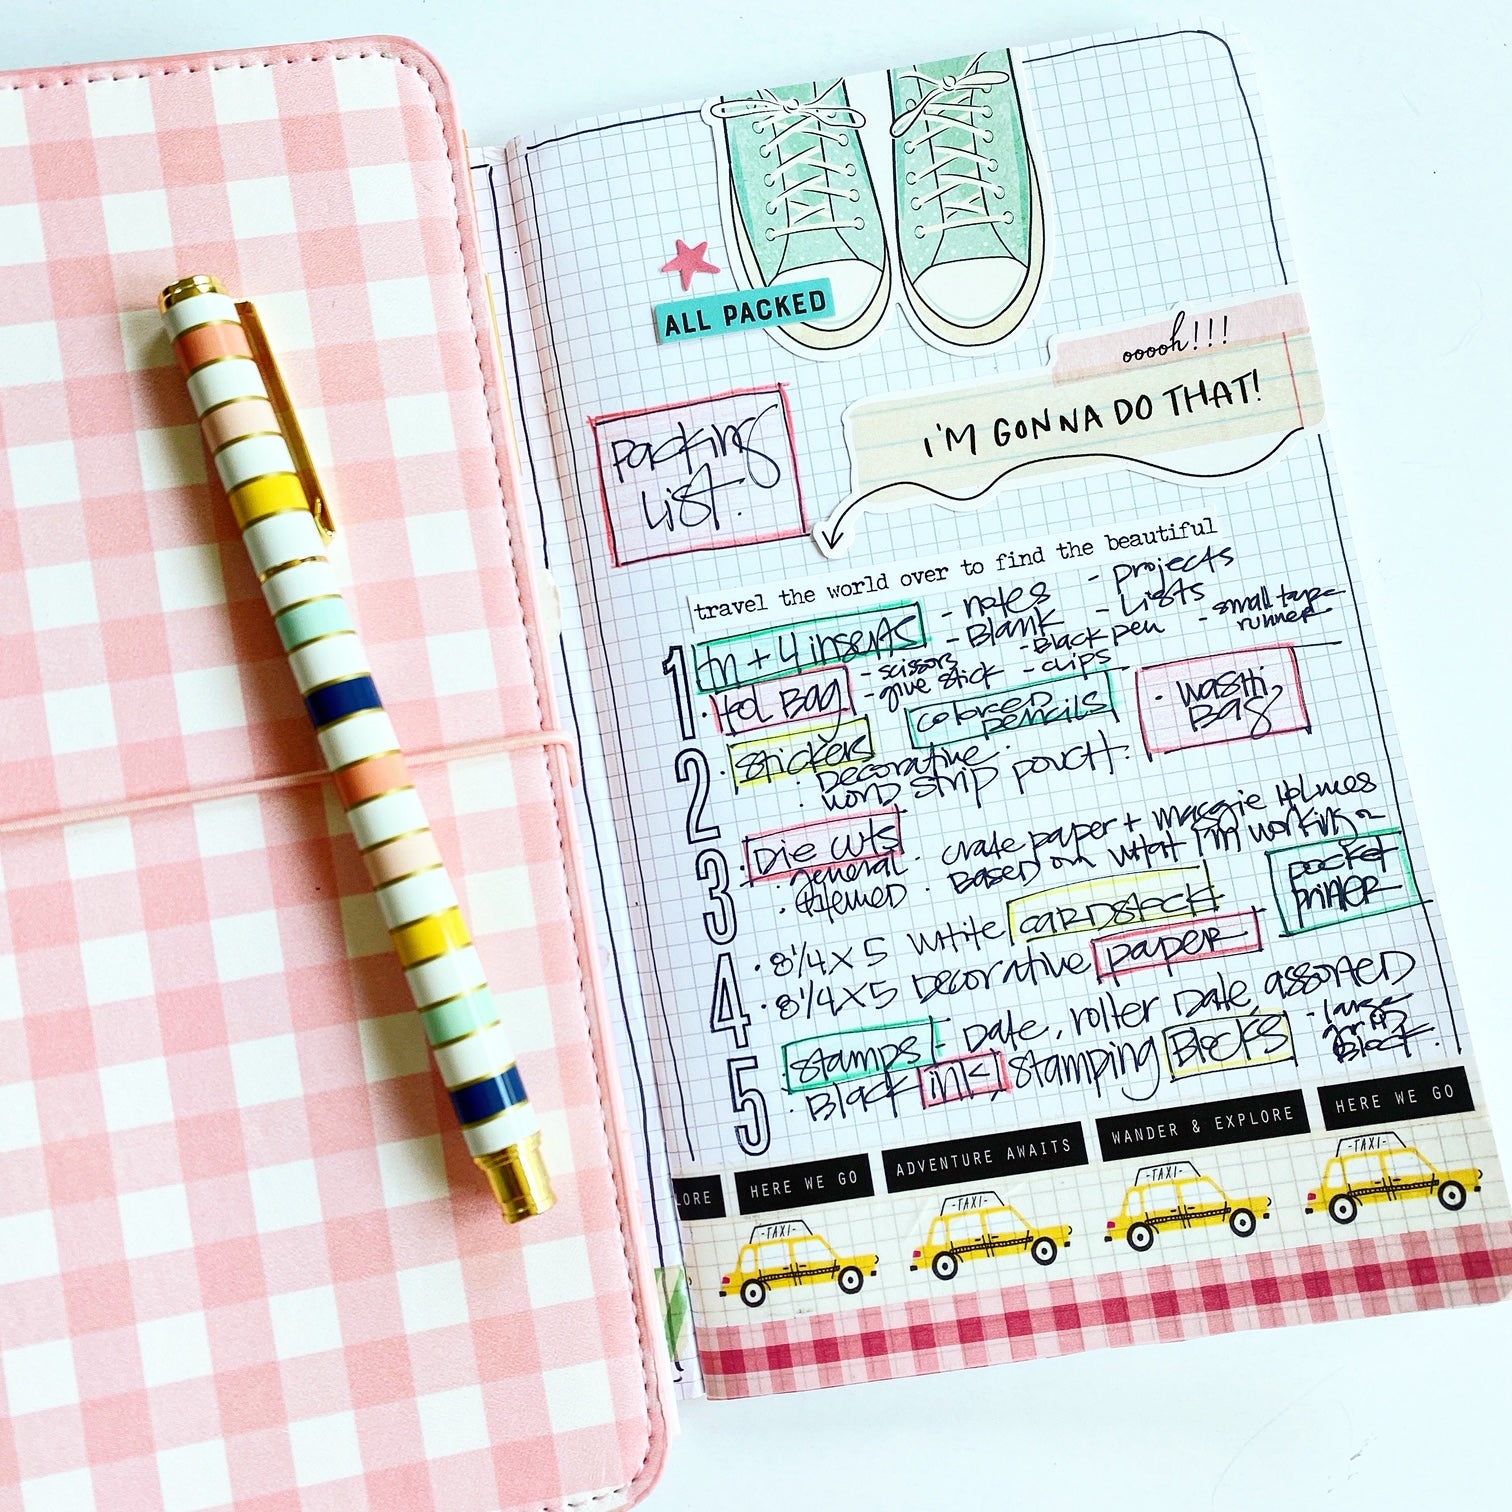 ALL PACKED
ooooh!!!
i'M GONNA DO THAT!
Packing
List.
travel the world over to find the beautiful
1
tn + 4 inserts - notes - projects
- Blank - Lists
· tool Bag - scissors - Black pen - small tape runner
- glue stick - clips
colored pencils
· washi Bag
2
· stickers
· Decorative
· word strip pouch.
3
· Die cuts · crate paper + maggie Holmes
· general
· themed · Based on what I'm working
pocket printer
4
· 8 1/4 x 5 white cardstock
· 8 1/4 x 5 Decorative paper
5
· stamps - Date, roller Date, assorted
· Black ink, stamping Blocks - large grid Block.
LORE
HERE WE GO
ADVENTURE AWAITS
WANDER & EXPLORE
HERE WE GO
-TAXI-
-TAXI-
-TAXI-
-TAXI-